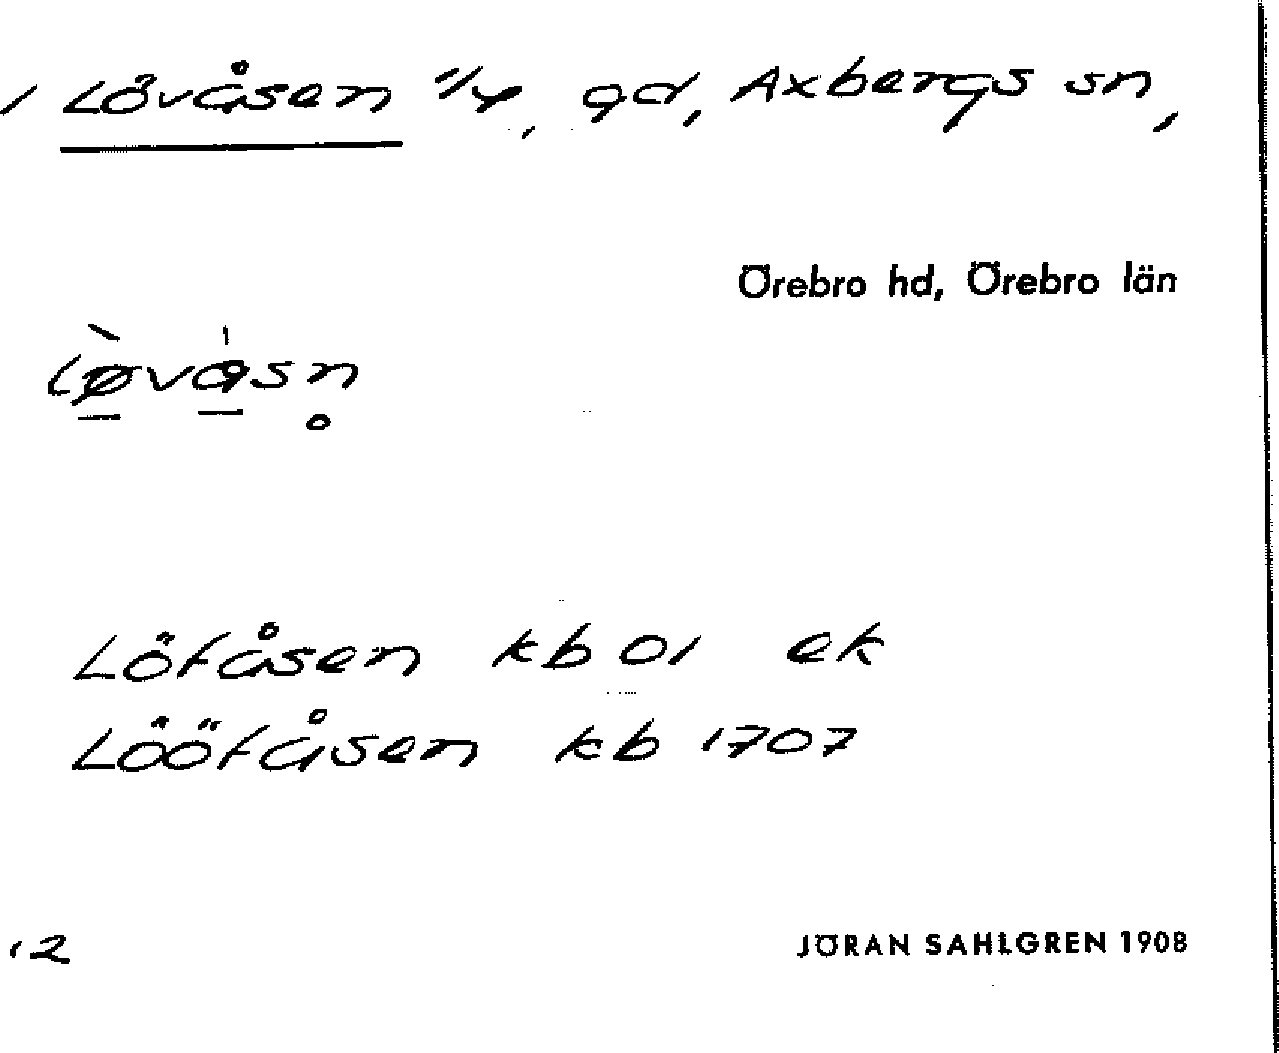 / Lövåsen 1/4, gd, Axbergs sn,
Örebro hd, Örebro län
lø̀våsn̥
Löfåsen kb 01 ek
Lööfåsen kb 1707
12
JÖRAN SAHLGREN 1908